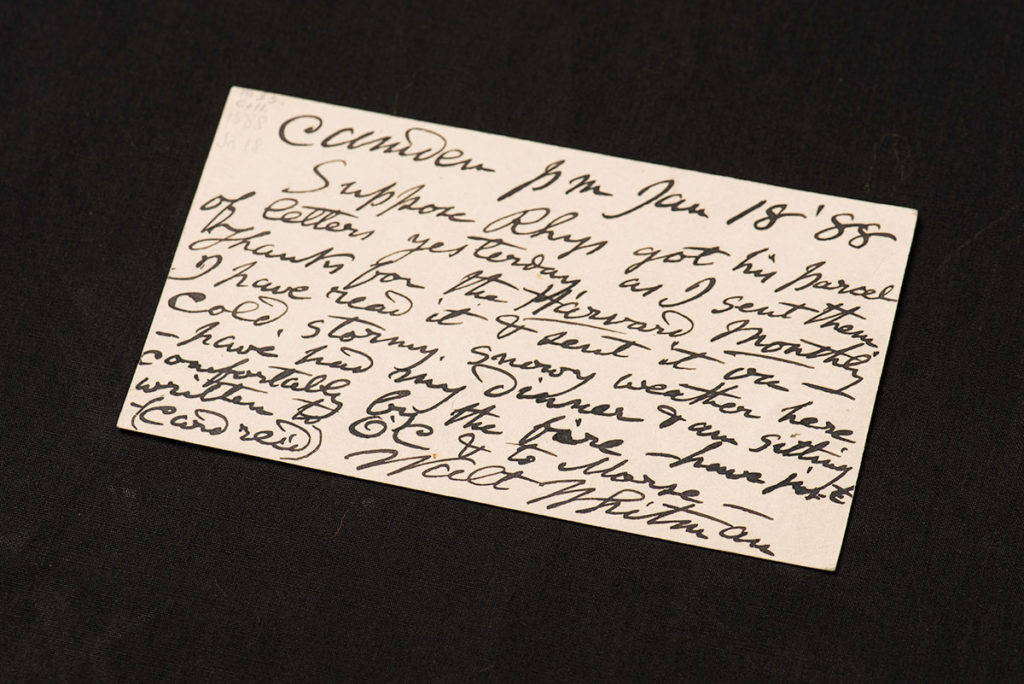 Mss.
Coll.
1888
Ja 18
Camden pm Jan 18 '88
Suppose Rhys got his parcel
of letters yesterday, as I sent them
Thanks for the Harvard Monthly
I have read it & sent it on —
Cold, stormy, snowy weather here
- have had my dinner & am sitting
comfortably by the fire - have just
written to O'C & to Morse
(Card rec'd)
Walt Whitman